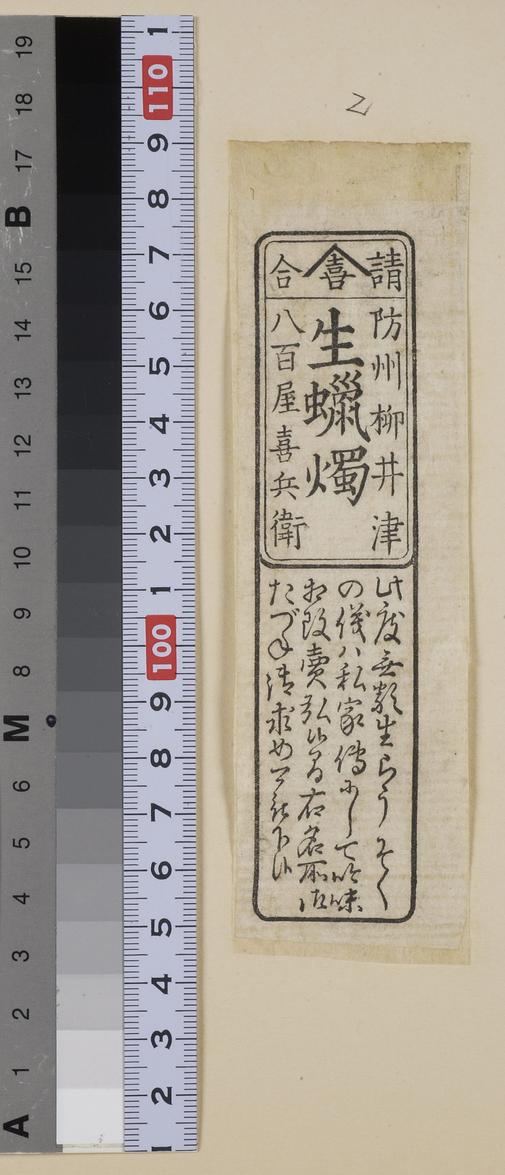 2
請合
喜
防州柳井津
生蠟燭
八百屋喜兵衛
此度無類生らうそく
の儀ハ私家傳にして吟味
相改賣弘候間右名所御
たづね御求め可被下候
19
18
17
B
15
14
13
12
11
10
9
8
M
6
5
4
3
2
1
A
1
110
9
8
7
6
5
4
3
2
1
100
9
8
7
6
5
4
3
2
1